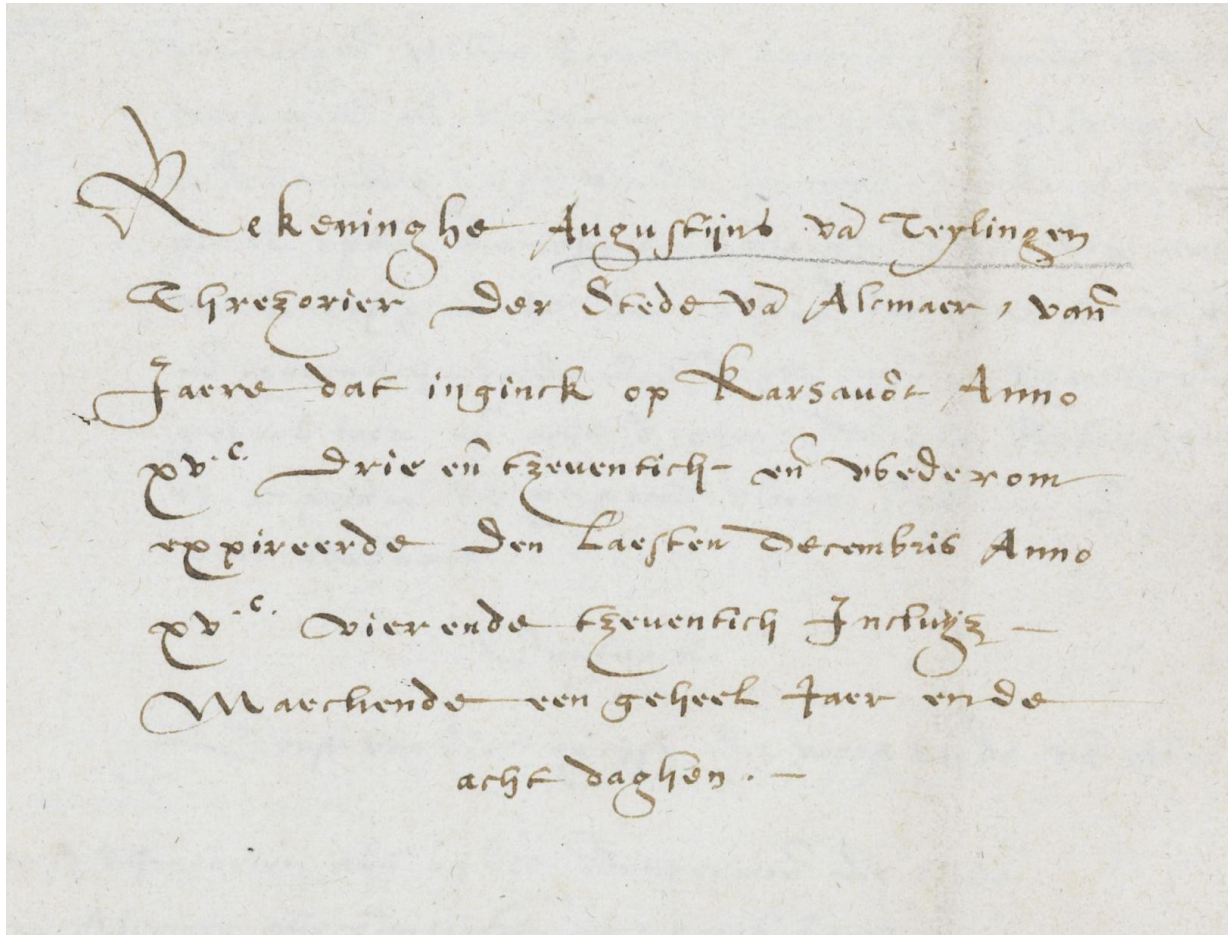 Rekeninghe Augustijns va Teylingen
Threzorier der Stede va Alcmaer, vañ
Jaere dat inginck op Karsauõt Anno
xv.c. drie eñ tzeuentich eñ wederom
expireerde den laesten Decembris Anno
xv.c. vierende tzeuentich Incluyz
Maeckende een geheel Jaer ende
acht daghen.